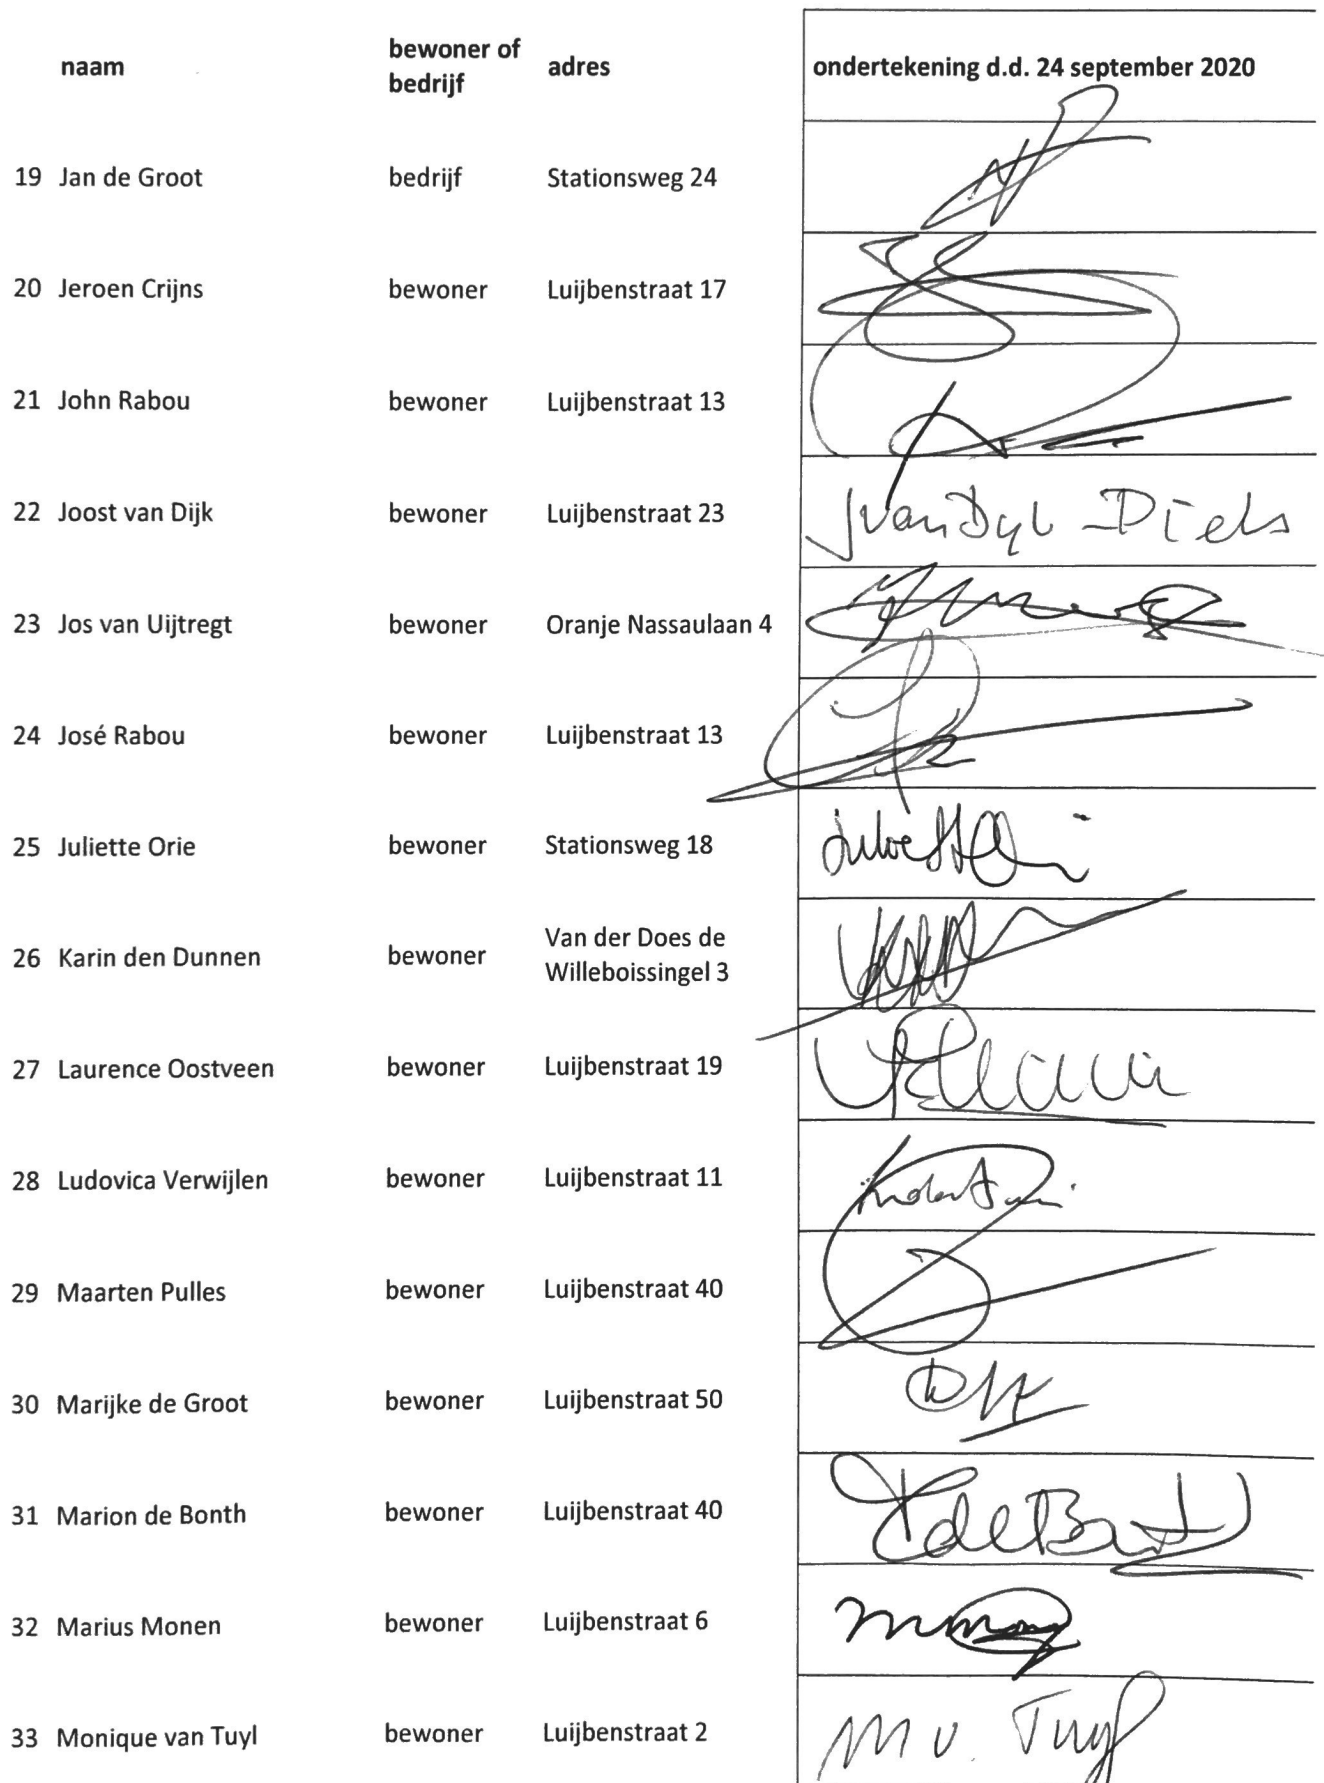 naam bewoner of bedrijf adres ondertekening d.d. 24 september 2020
19 Jan de Groot bedrijf Stationsweg 24
20 Jeroen Crijns bewoner Luijbenstraat 17
21 John Rabou bewoner Luijbenstraat 13
22 Joost van Dijk bewoner Luijbenstraat 23
23 Jos van Uijtregt bewoner Oranje Nassaulaan 4
24 José Rabou bewoner Luijbenstraat 13
25 Juliette Orie bewoner Stationsweg 18
26 Karin den Dunnen bewoner Van der Does de Willeboissingel 3
27 Laurence Oostveen bewoner Luijbenstraat 19
28 Ludovica Verwijlen bewoner Luijbenstraat 11
29 Maarten Pulles bewoner Luijbenstraat 40
30 Marijke de Groot bewoner Luijbenstraat 50
31 Marion de Bonth bewoner Luijbenstraat 40
32 Marius Monen bewoner Luijbenstraat 6
33 Monique van Tuyl bewoner Luijbenstraat 2 M v. Tuyl